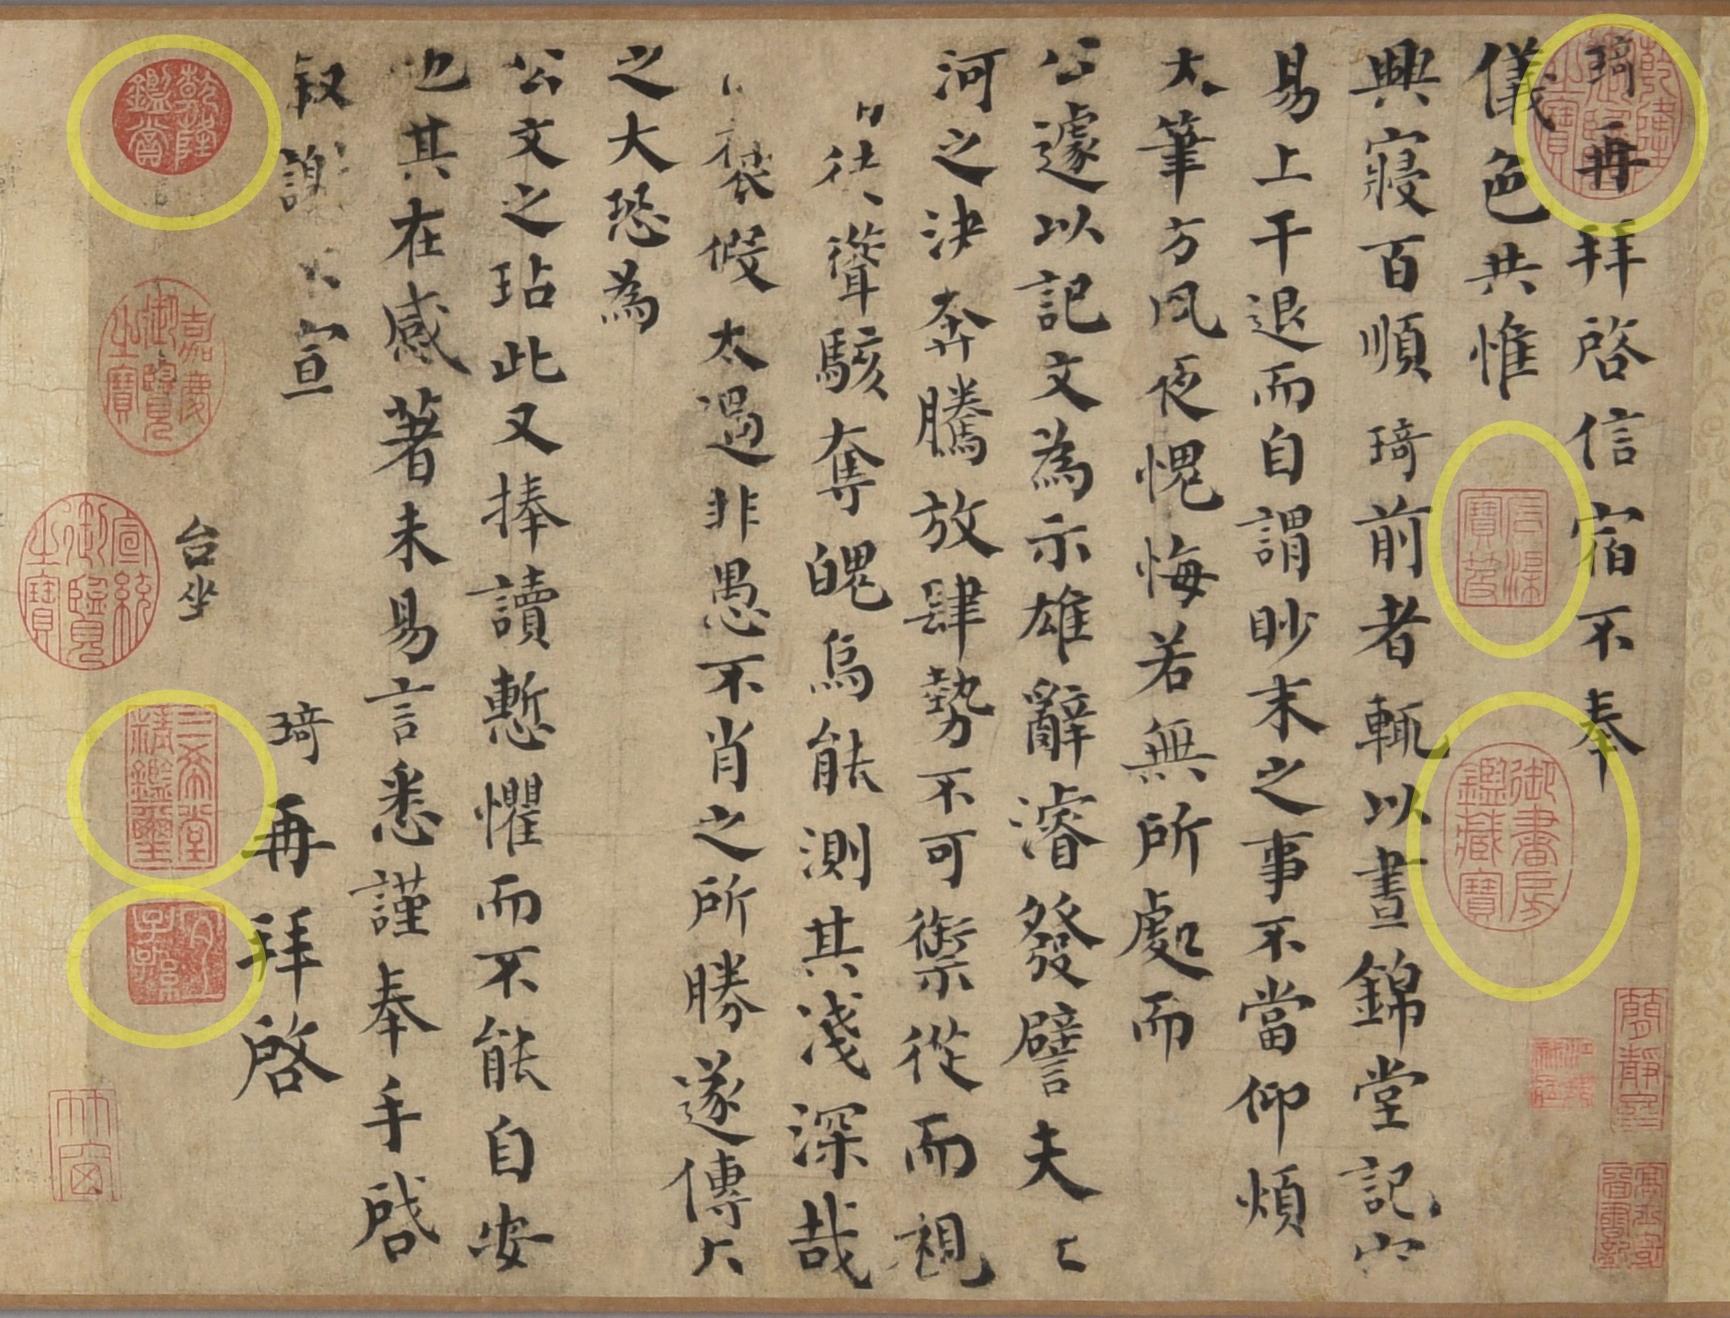 琦再拜啓信宿不奉
儀色共惟
興寢百順琦前者輒以晝錦堂記
易上干退而自謂眇末之事不當仰煩
大筆方夙夜愧悔若無所處而
公遽以記文為示雄辭濬發譬夫
河之決奔騰放肆勢不可禦從而視
徒聳駭奪魄烏能測其淺深哉
褒假太過非愚不肖之所勝遂傳
之大恐為
公文之玷此又捧讀慙懼而不能自安
也其在感著未易言悉謹奉手啓
叙謝不宣
琦再拜啓
台坐
乾隆御覽之寶
御書房鑑藏寶
乾隆鑑賞
嘉慶御覽之寶
宣統御覽之寶
三希堂精鑑璽
宜子孫